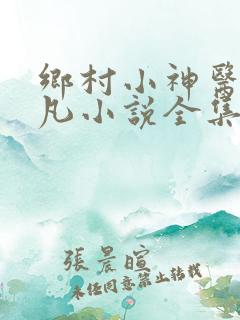 鄉村小神醫
凡小說全集
張晨暄
未经同意禁止转载